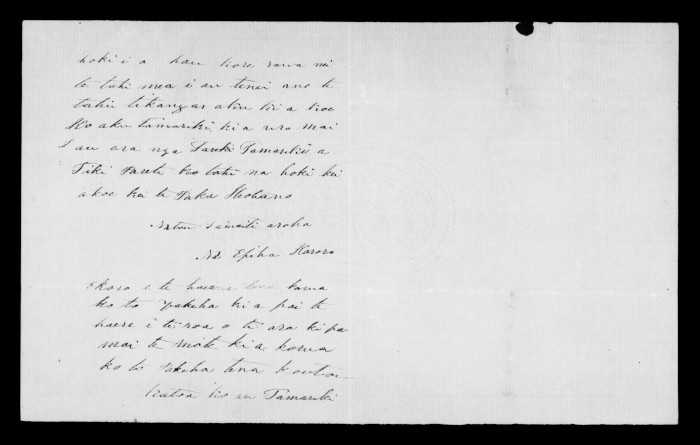 hoki i a hau kore rawa
te tahi mea i au tenei ano te
tahi tikanga aku ki a koe
Ko aku tamariki kia mai
I au ara nga Tamariki a
Tiki ko tahi na hoki kei
a koe kei te
Na tou tamaiti aroha
Na Epiha Karoro
Ekoro e te haere koma
ko to Pakeha kia pai te
haere i te roa o te ara ki pa
mai te mate kia korua
ko to Pakeha tena koutou
katoa ko au Tamariki